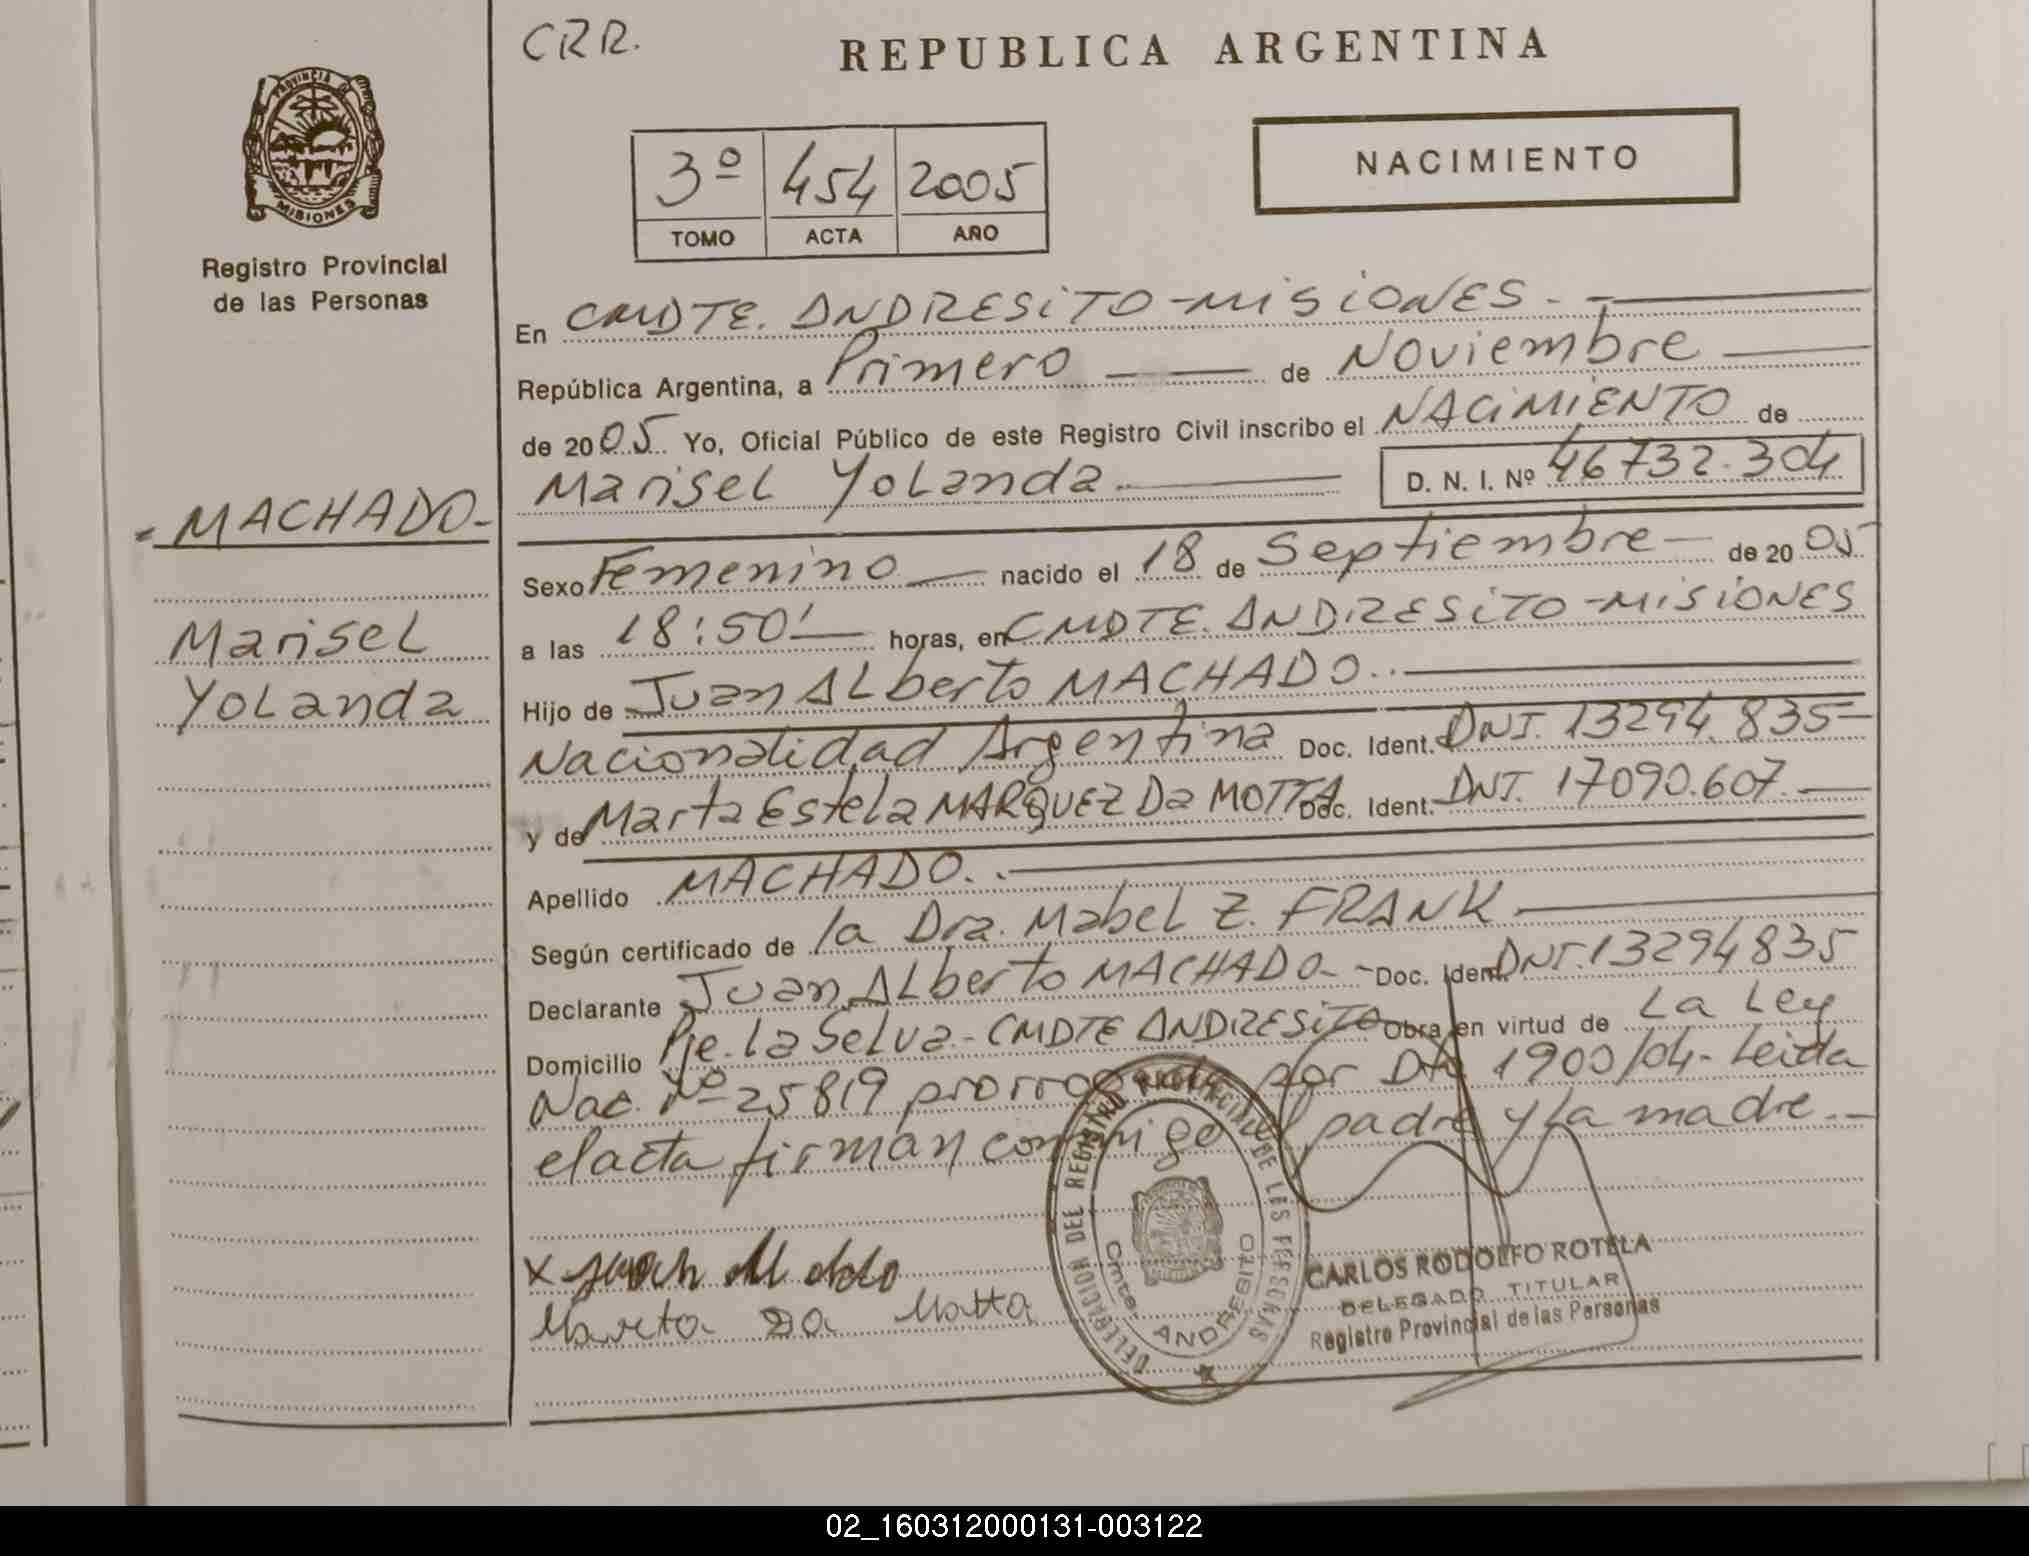 CRR.
REPUBLICA ARGENTINA
PROVINCIA DE
MISIONES
Registro Provincial
de las Personas
3º 454 2005
TOMO ACTA AÑO
NACIMIENTO
En CMDTE. ANDRESITO-MISIONES.
República Argentina, a Primero de Noviembre
de 2005 Yo, Oficial Público de este Registro Civil inscribo el NACIMIENTO de
Marisel Yolanda D. N. I. Nº 46732.304
- MACHADO-
Marisel
Yolanda
Sexo Femenino nacido el 18 de Septiembre de 2005
a las 18:50' horas, en CMDTE. ANDRESITO-MISIONES
Hijo de Juan Alberto MACHADO.
Nacionalidad Argentina Doc. Ident. DNI. 13294.835
y de Marta Estela MARQUEZ Da MOTTA Doc. Ident. DNI. 17090.607.
Apellido MACHADO.
Según certificado de la Dra. Mabel Z. FRANK
Declarante Juan Alberto MACHADO- Doc. Ident. DNI. 13294835
Domicilio Pje. La Selva.- CMDTE ANDRESITO Obra en virtud de La Ley
Nac. Nº 25819 por 1900/04- Leida
el acta firman conmigo el padre y la madre.-
x
Marta Da Motta
DELEGACION DEL REGISTRO PROVINCIAL DE LAS PERSONAS
Cmte. ANDRESITO
CARLOS RODOLFO ROTELA
DELEGADO TITULAR
Registro Provincial de las Personas
02_160312000131-003122